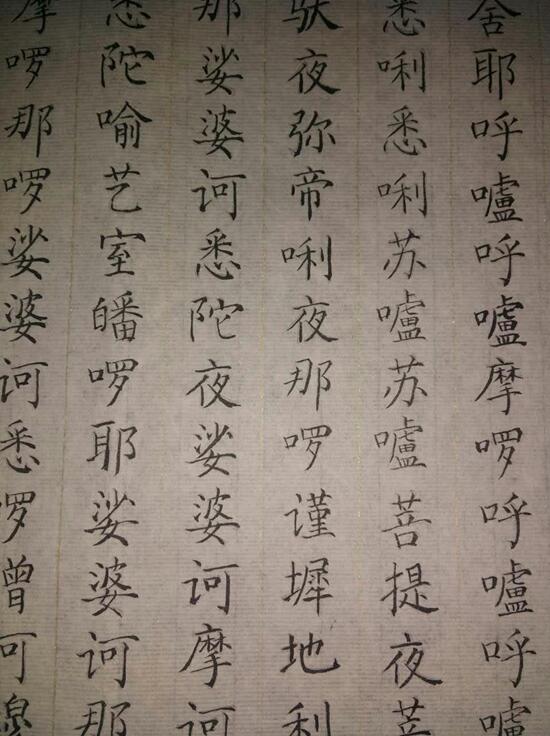 舍耶呼嚧呼嚧摩啰呼嚧呼嚧
悉唎悉唎苏嚧苏嚧菩提夜菩
驮夜弥帝唎夜那啰谨墀地利
那娑婆诃悉陀夜娑婆诃摩诃
悉陀喻艺室皤啰耶娑婆诃那
摩啰那啰娑婆诃悉啰僧阿穆